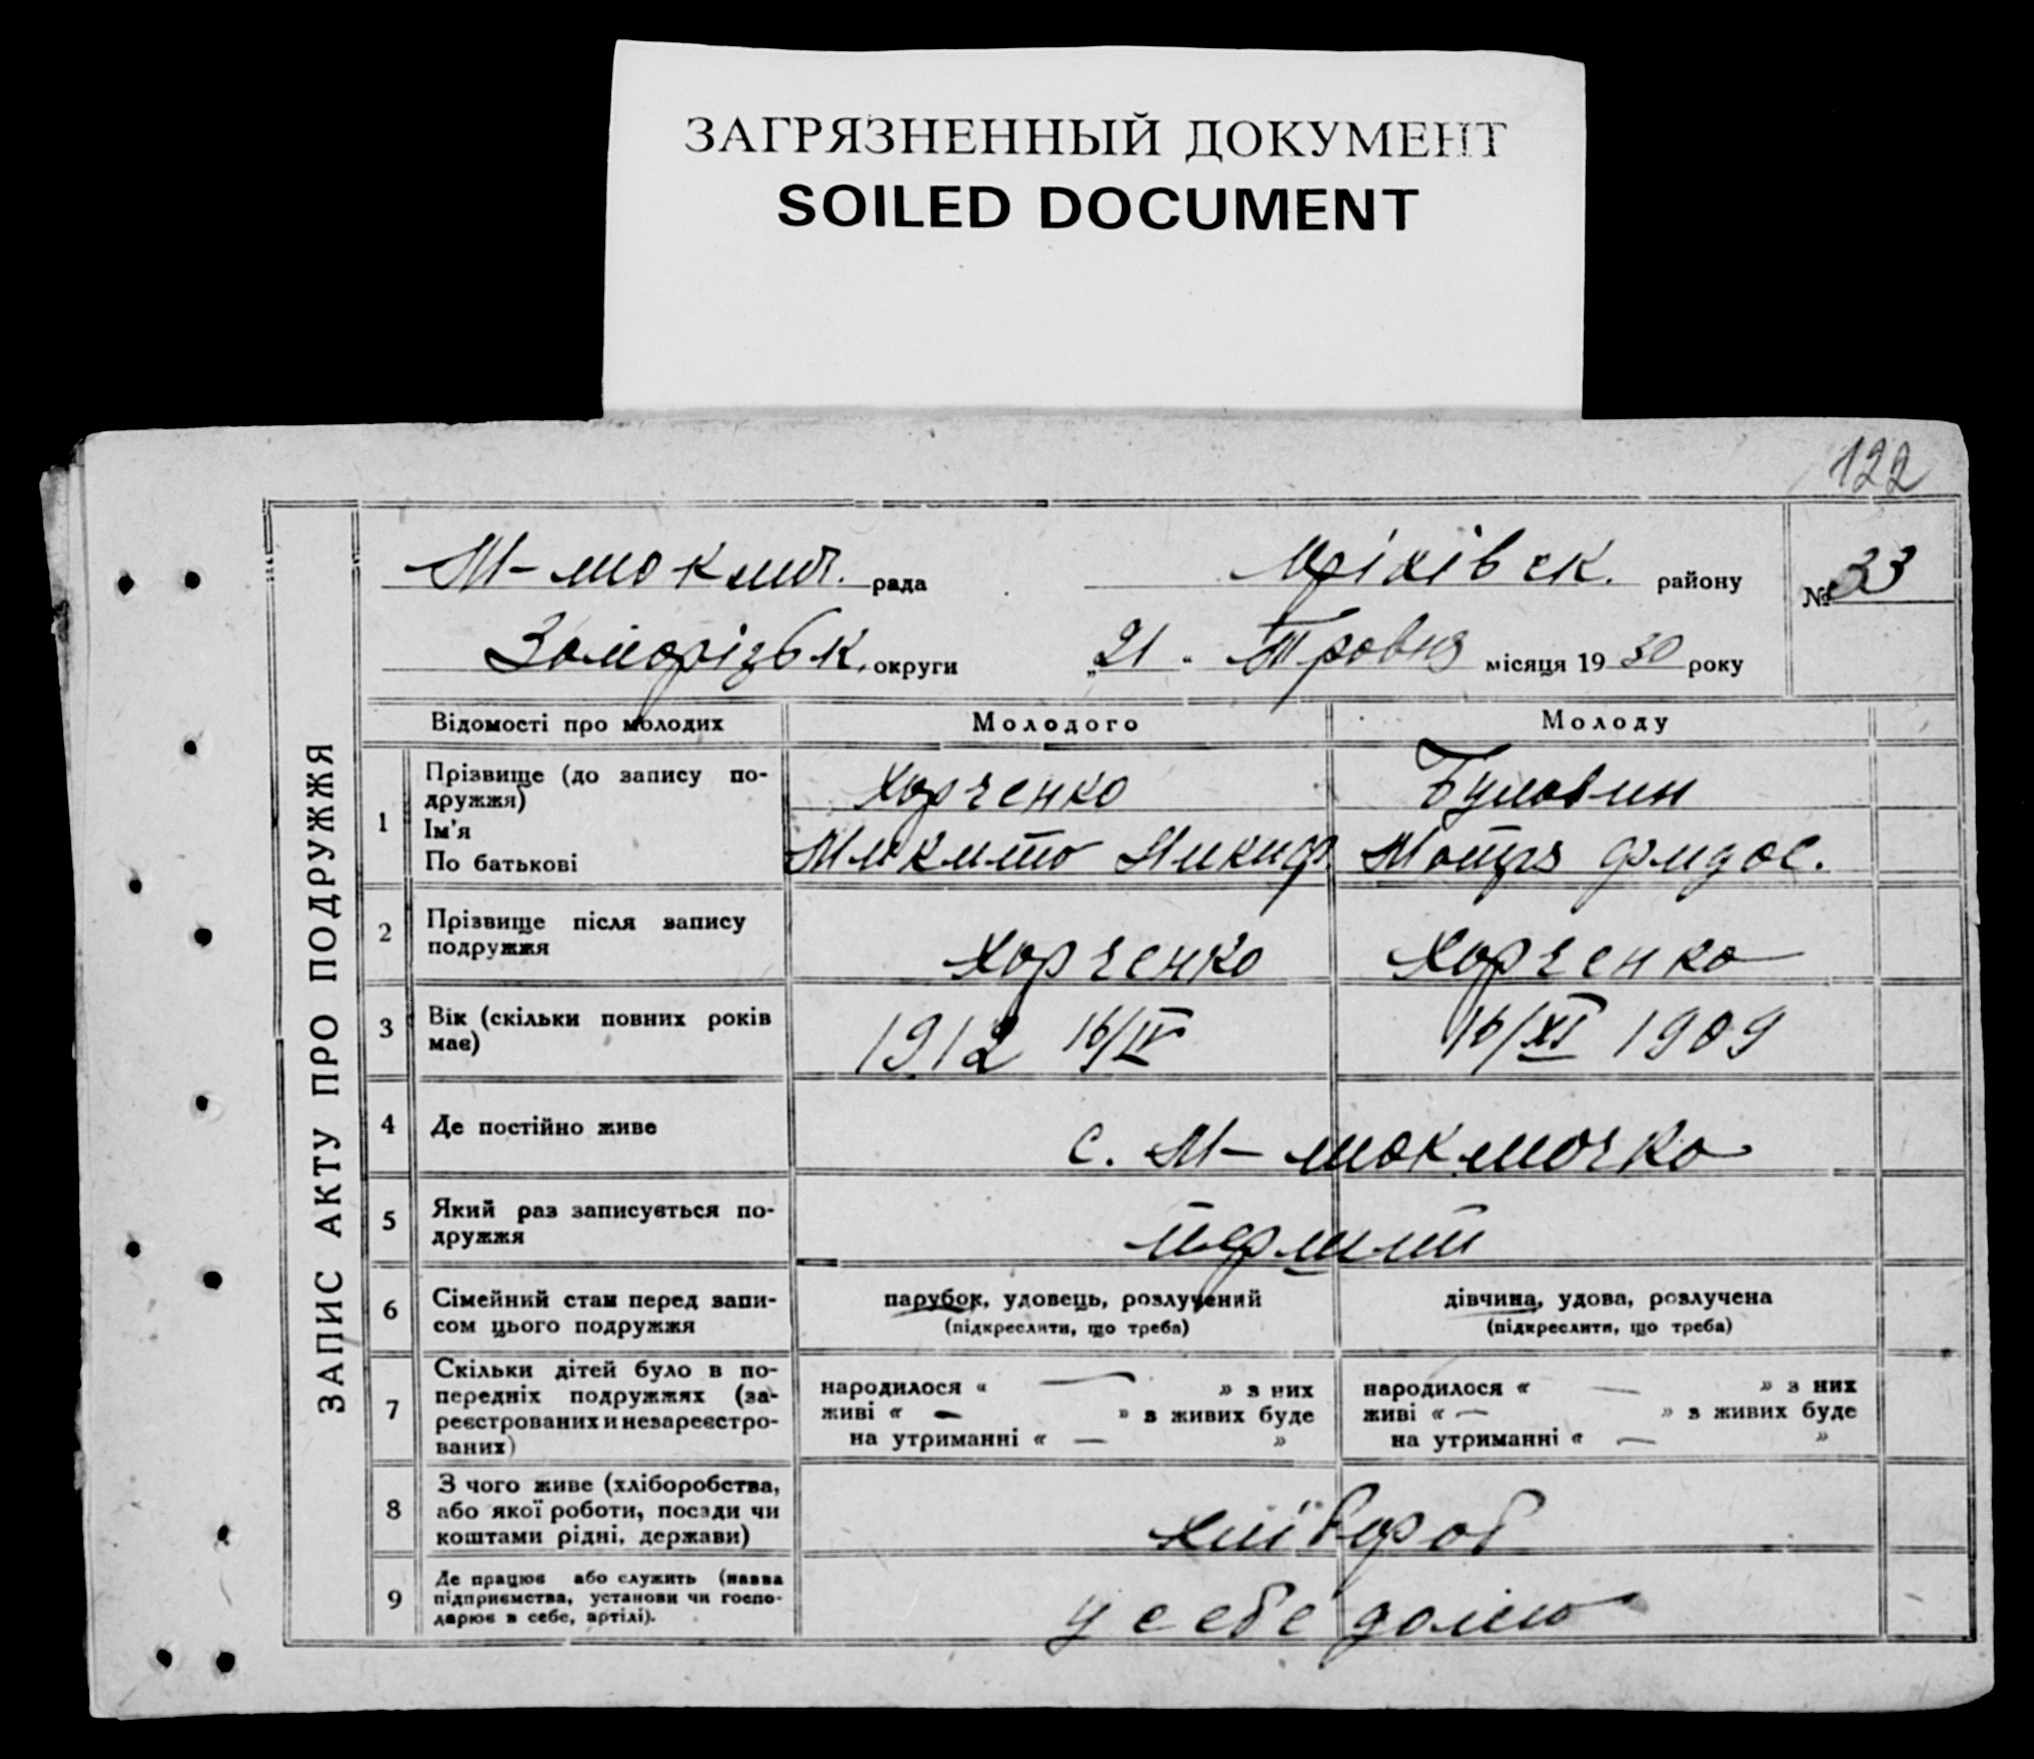 ЗАГРЯЗНЕННЫЙ ДОКУМЕНТ
SOILED DOCUMENT
122
М-токмач. рада Оріхівськ. району № 33
Запорізьк. округи „21" Травня місяця 1930 року
ЗАПИС АКТУ ПРО ПОДРУЖЖЯ
Відомості про молодих Молодого Молоду
1 Прізвище (до запису по-
дружжя) Харченко
Ім'я
По батькові Микито Никиф. Мотря Фидос.
2 Прізвище після запису
подружжя Харченко Харченко
3 Вік (скільки повних років
має) 1912 16/IV 16/XI 1909
4 Де постійно живе с. М-токмачка
5 Який раз записується по-
дружжя перший
6 Сімейний стан перед запи-
сом цього подружжя
парубок, удовець, розлучений
(підкреслити, що треба)
дівчина, удова, розлучена
(підкреслити, що треба)
7 Скільки дітей було в по-
передніх подружжях (за-
реєстрованих и незареєстро-
ваних)
народилося « — » з них
живі « — » з живих буде
на утриманні « — »
народилося « — » з них
живі « — » з живих буде
на утриманні « — »
8 З чого живе (хліборобства,
або якої роботи, посади чи
коштами рідні, держави) хлібороб
9 Де працює або служить (назва
підприємства, установи чи госпо-
дарює в себе, артілі). у себе дома